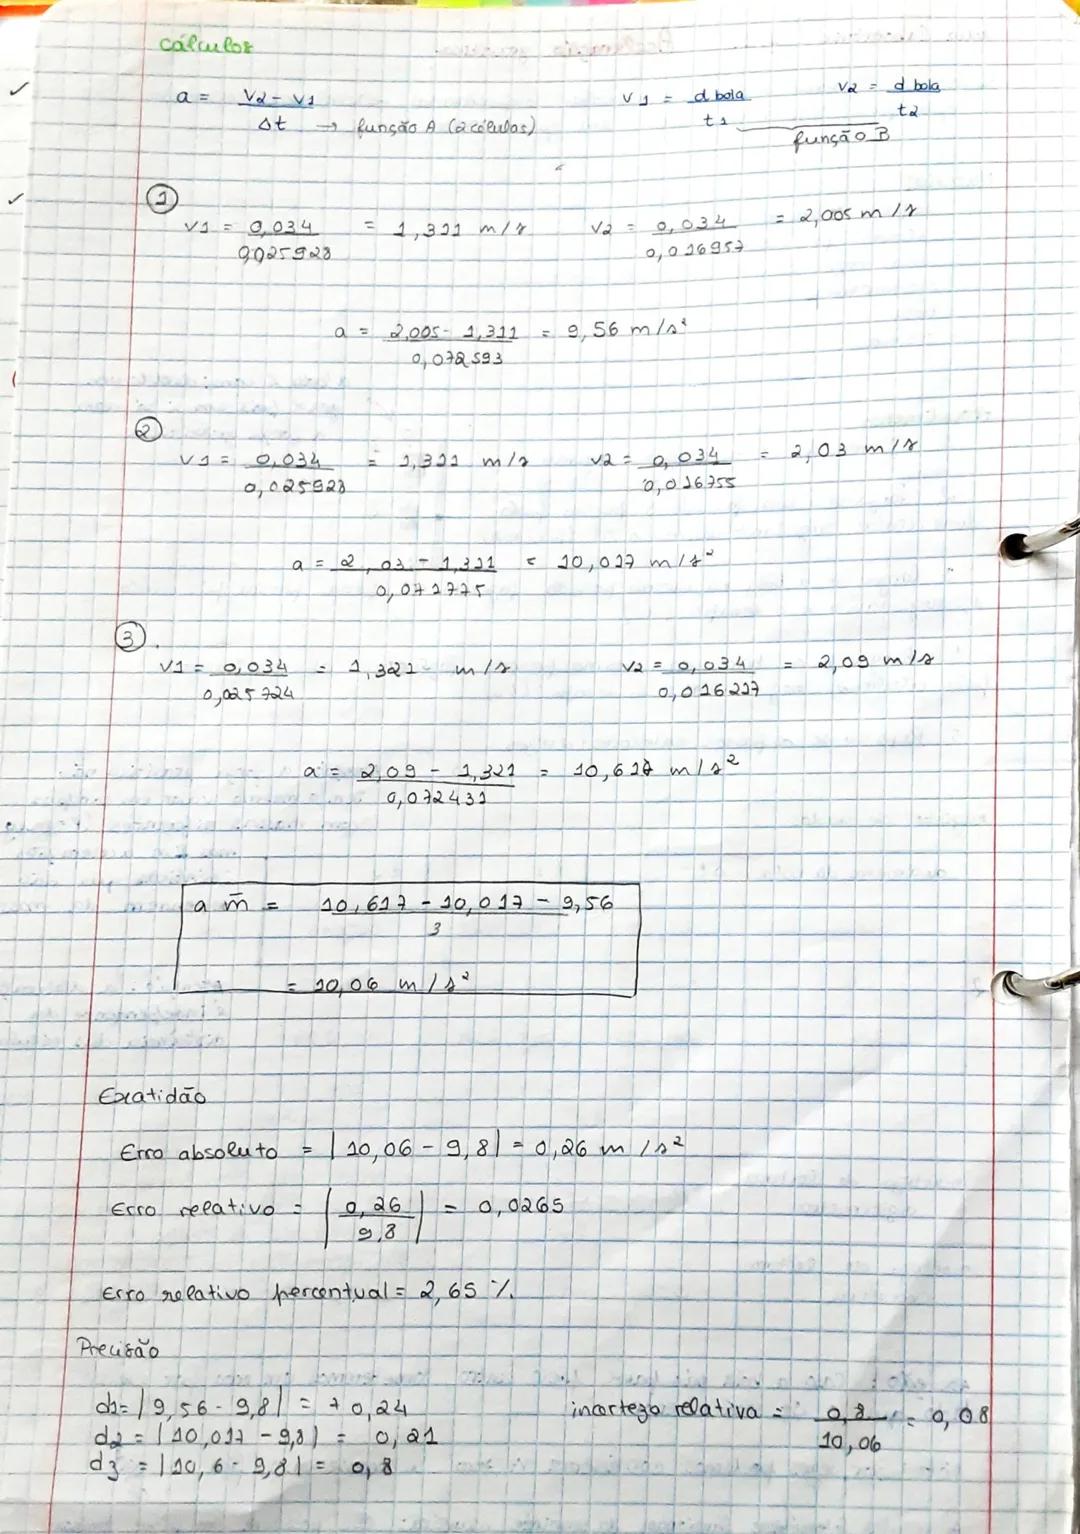 Cálculos
a = v2 - v1 / Δt → função A (2 células)
v1 = d bola / t1 v2 = d bola / t2
função B
①
v1 = 0,034 / 0,025928 = 1,311 m/s v2 = 0,034 / 0,016957 = 2,005 m/s
a = 2,005 - 1,311 / 0,072593 = 9,56 m/s²
②
v1 = 0,034 / 0,025928 = 1,311 m/s v2 = 0,034 / 0,016755 = 2,03 m/s
a = 2,03 - 1,311 / 0,071775 = 10,017 m/s²
③
v1 = 0,034 / 0,025724 = 1,321 m/s v2 = 0,034 / 0,016227 = 2,09 m/s
a = 2,09 - 1,321 / 0,072431 = 10,617 m/s²
a m̄ = 10,617 - 10,017 - 9,56 / 3
= 10,06 m/s²
Exatidão
Erro absoluto = |10,06 - 9,8| = 0,26 m/s²
Erro relativo = |0,26 / 9,8| = 0,0265
Erro relativo percentual = 2,65 %.
Precisão
d1 = |9,56 - 9,8| = + 0,24
d2 = |10,017 - 9,8| = 0,21
d3 = |10,6 - 9,8| = 0,8
incerteza relativa = 0,8 / 10,06 = 0,08